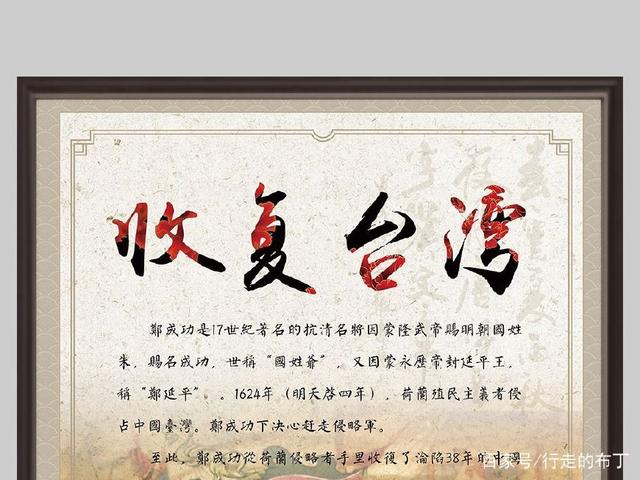 收复台湾
鄭成功是17世紀著名的抗清名將因蒙隆武帝賜明朝國姓
朱，賜名成功，世稱“國姓爺”，又因蒙永歷帝封延平王，
稱“鄭延平”。1624年（明天啓四年），荷蘭殖民主義者侵
占中國臺灣。鄭成功下决心赶走侵略軍。
至此，鄭成功從荷蘭侵略者手里收復了淪陷38年的中國
百家号/行走的布丁